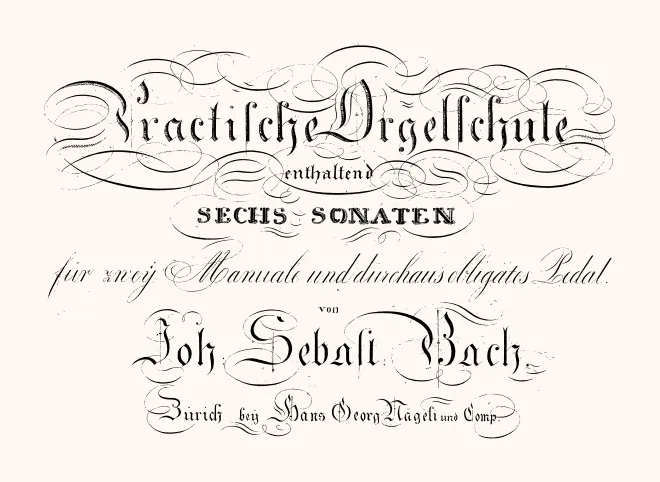 Practische Orgelschule
enthaltend
SECHS SONATEN
für zweÿ Manuale und durchaus obligates Pedal.
von
Joh. Sebast. Bach.
Zürich beÿ Hans Georg Nägeli und Comp.